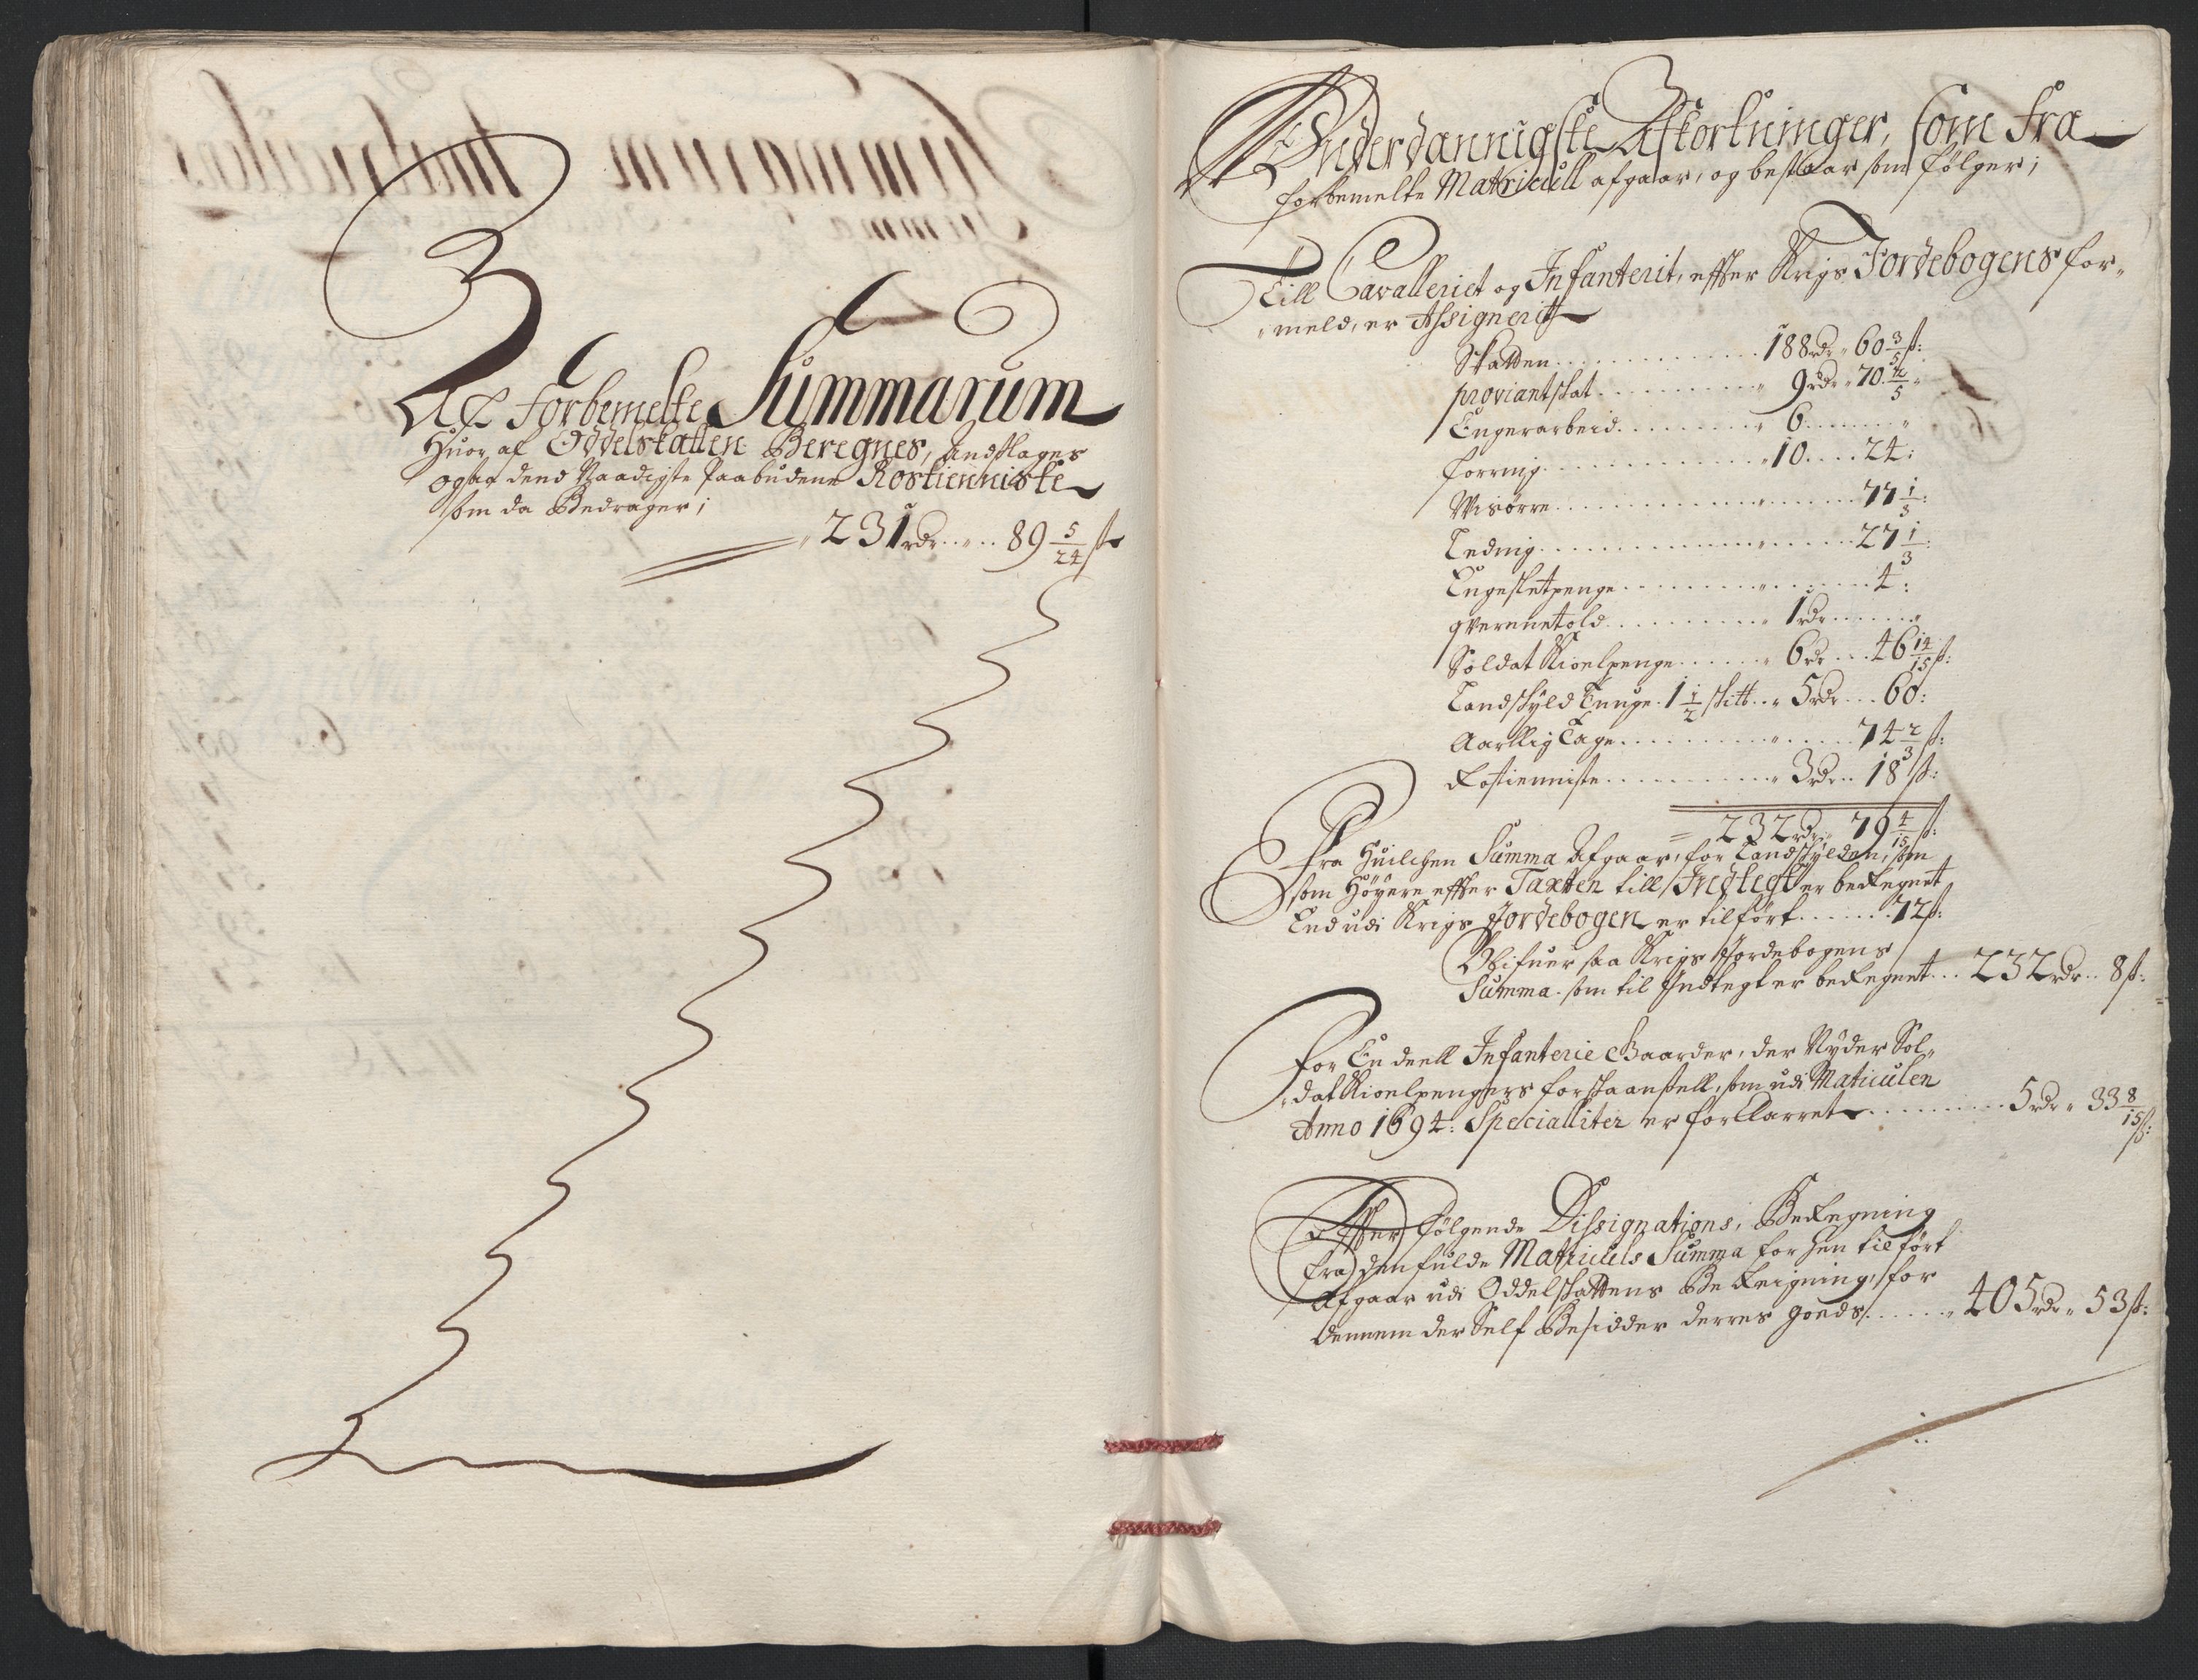 Af forbemelte Summarum
Huor af Oddelskatten Beregnes, Andtages
ogsaa dend Naadigste Paabudene Rostienniste
som da Bedrager;
231 rdr 89 5/24 ß
Underdannigste Afkortninger, som fra
forbemelte Matricull afgaar, og bestaar som følger;
Till Cavalleriet og Infanterit, effter Krigs Jordebogens for„
„meld, er Assignerit
Skatten 188 rdr 60 3/5 ß:
proviantskat 9 rdr 70 2/5
Engerarbeid 6
forring 10 24:
Wisørre 77 1/3:
Leding 27 1/3:
Engesletpenge 4:
qvernnetold 1 rdr
Soldat Kioelpenge 6 rdr 46 14/15 ß:
Landskyld Tunge 1 1/2 skitt 5 rdr 60:
Aarllig Tage 74 2/3 ß:
Rostienniste 3 rdr 18 ß:
232 rdr 79 4/15 ß:
Fra Huilchen Summa Afgaar, for Landskylden, som
som Høyere effter Taxten till Indtegt er beregnet
End udi Krigs Jordebogen er tilført 72 ß:
Blifuer saa Krigs Jordebogens
Summa som til Indtegt er beregnet 232 rdr 8 ß:
For En deell Infanterie Gaarder, der Nyder Sol„
„dat Kioelpengers forskaanssell, som udi Matriculen
Anno 1694: Specialliter er forklarret 5 rdr 33 8/15 ß:
Effter følgende Dissignations, Beregning
fra den fulde Matriculs Summa for hen tilført
Afgaar udi Oddelskattens Bereigning, for
dennem der Self Besidder derres goeds 405 rdr 53 ß: